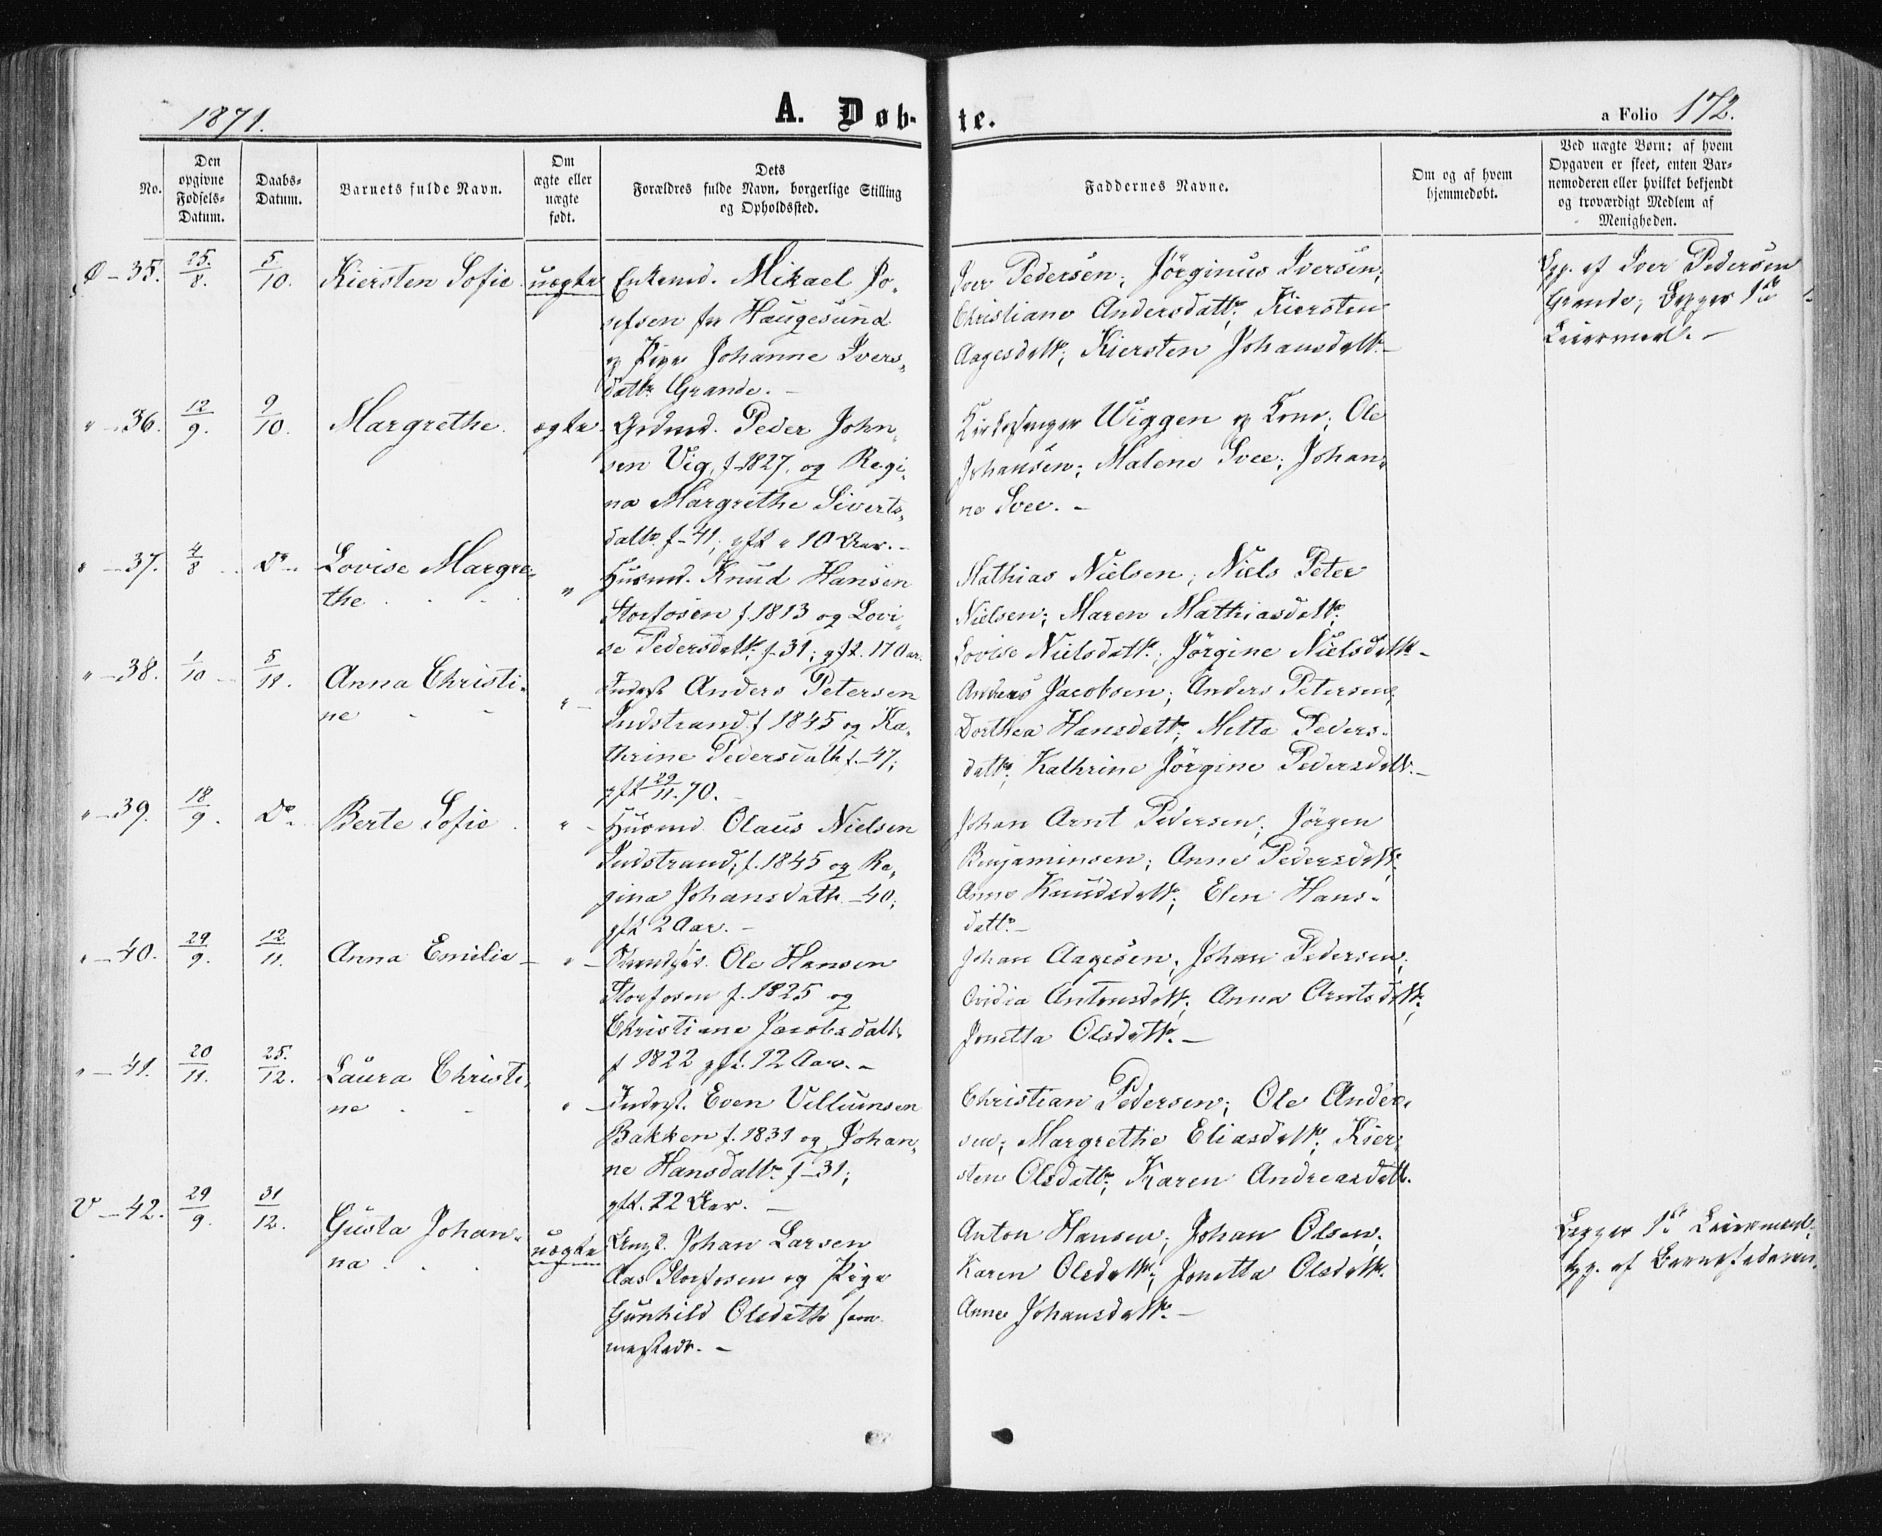 1871.
A. Døb-
te.
a Folio 172.
No.
Den
opgivne
Fødsels-
Datum.
Daabs-
Datum.
Barnets fulde Navn.
Om
ægte eller
uægte
født.
Dets
Forældres fulde Navn, borgerlige Stilling
og Opholdssted.
Faddernes Navne.
Om og af hvem
hjemmedøbt.
Ved uægte Børn: af hvem
Opgaven er skeet, enten Bar-
nemoderen eller hvilket bekjendt
og troværdigt Medlem af
Menigheden.
Ø - 35. 25/8. 5/10. Kiersten Sofie uægte
Enkemd. Mikael Jo-
sefsen fra Haugesund
og Pige Johanne Ivers-
datt. Grande. -
Iver Pedersen; Jørginus Iversen;
Christiane Andersdatt; Kiersten
Aagesdatt; Kiersten Johansdatt. -
Opg. af Iver Pedersen
Grande; Begges 1ste
Leiermaal. -
" - 36. 12/9. 9/10. Margrethe. ægte.
Grdmd. Peder John-
sen Vig, f. 1827, og Regi-
na Margrethe Siverts-
datt. f - 41; gft 10 Aar. -
Kirkesanger Wiggen og Kone; Ole
Johansen; Malene Svee; Johan-
ne Svee. -
" - 37. 4/8 Do. Lovise Margre-
the "
Husmd. Knud Hansen
Storfosen f. 1813 og Lovi-
se Pedersdatt; f - 31; gft. 17 Aar.
Mathias Nielsen; Niels Peter
Nielsen; Maren Mathiasdatt;
Lovise Nielsdatt; Jørgine Nielsdatt -
" - 38. 1/10 5/11. Anna Christi-
ne "
Inderst Anders Petersen
Indstrand f 1845 og Ka-
thrine Pedersdatt f - 47;
gft 29/11. 70. -
Anders Jacobsen; Anders Petersen;
Dorthea Hansdatt; Mette Peders-
datt; Kathrine Jørgine Pedersdatt. -
" - 39. 18/9. Do. Berte Sofie "
Husmd Olaus Nielsen
Indstrand; f. 1845 og Re-
gina Johansdatt - 40;
gft 2 Aar. -
Johan Arnt Pedersen; Jørgen
Benjaminsen; Anne Pedersdatt
Anne Knudsdatt; Elen Hans-
datt. -
" - 40. 29/9. 12/11. Anna Emilie - "
Ole Hansen
Storfosen f. 1825 og
Christiane Jacobsdatt.
f 1822 gft. 12 Aar. -
Johan Aagesen; Johan Pedersen;
Ovidia Antonsdatt; Anna Arntsdatt;
Jonetta Olsdatt. -
" - 41. 20/11. 25/12. Laura Christi-
ne "
Inderst. Even Villumsen
Bakken f. 1831 og Johan-
ne Hansdatt. f - 31;
gft. 12 Aar. -
Christian Pedersen; Ole Ander-
sen; Margrethe Eliasdatt; Kier-
sten Olsdatt; Karen Andreasdatt.
V - 42. 29/9. 31/12. Gusta Johan-
na uægte
Ungk. Johan Larsen
Aas Storfosen og Pige
Gunhild Olsdatt sam-
mesteds. -
Anton Hansen; Johan Olsen;
Karen Olsdatt; Jonetta Olsdatt.
Anne Johansdatt. -
Begges 1ste Leiermaal,
opg. af Barnefaderen.